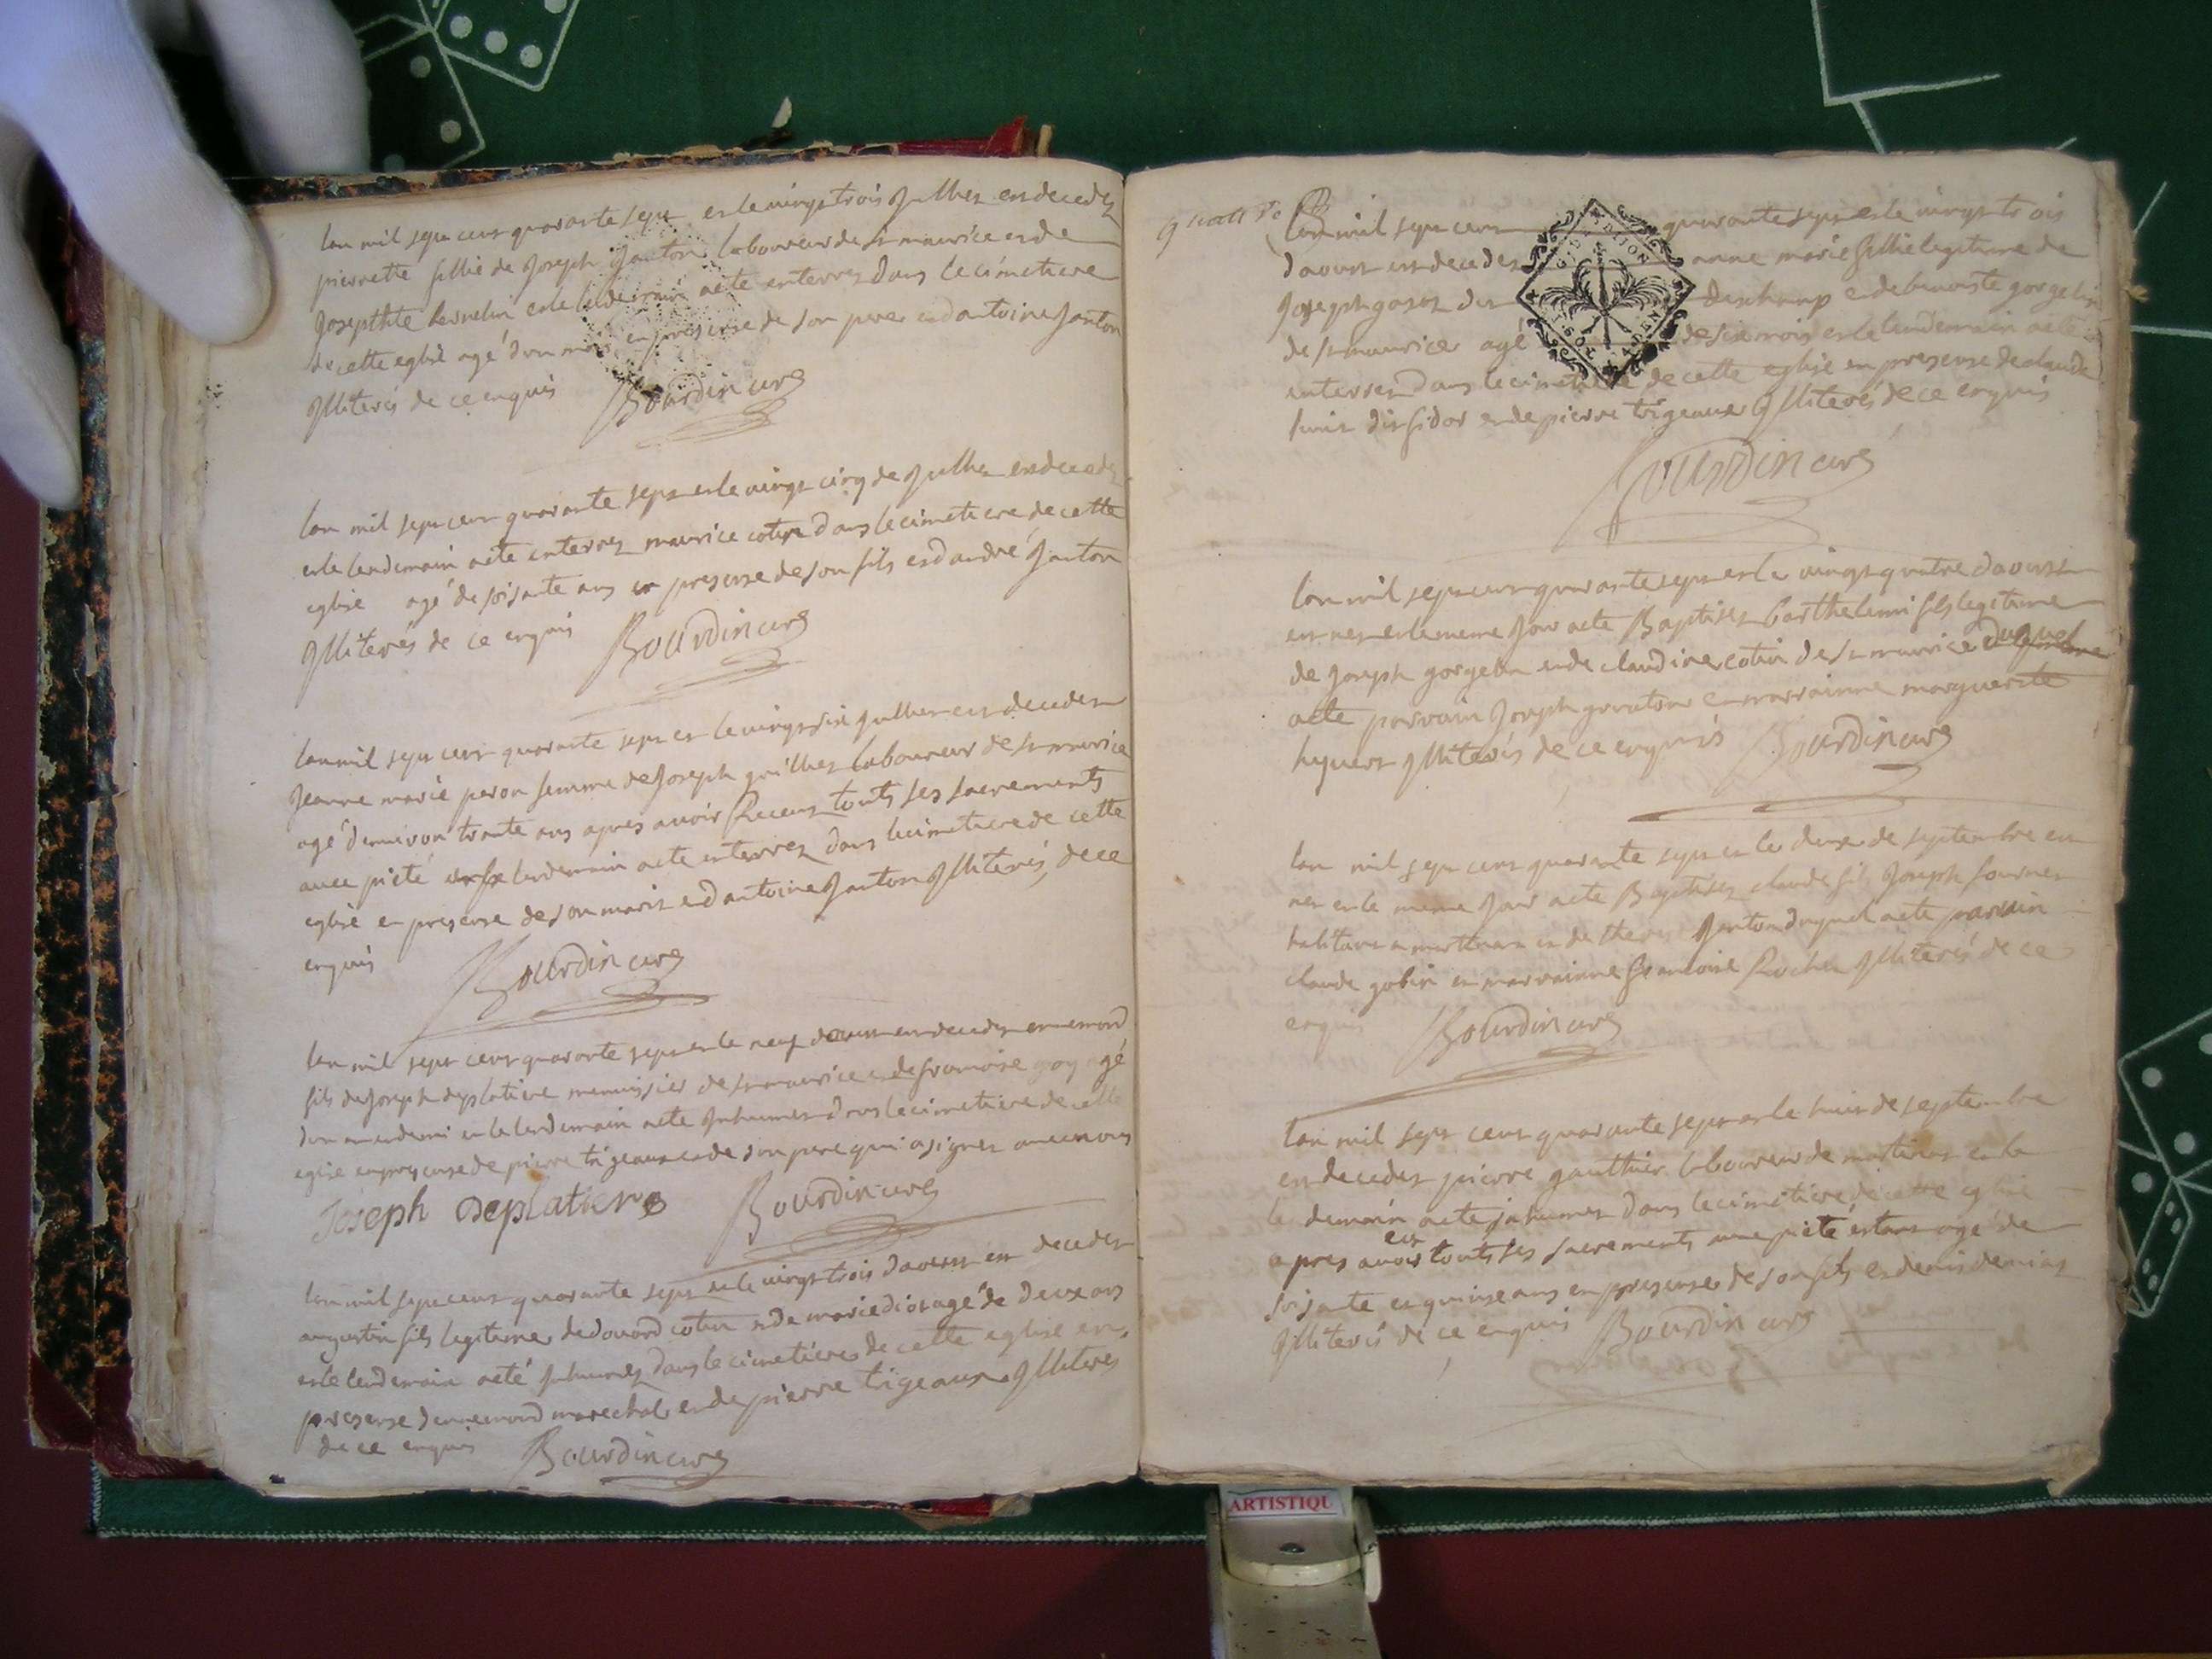 lan mil sept cent quarante sept et le vingt trois Jullhet est decedez
pierrette fillie de Joseph Janton laboureur de st maurice et de
Josepthte et le lendemain a ete enterrez dans le cimetiere
de cette eglise agé d'un mois en presense de son pere et d'antoine Janton
Jlliterés de ce enquis Bourdin curé
lan mil sept cent quarante sept et le vingt cinq de Jullhet est decedez
et le lendemain a ete enterrez maurice cotin dans le cimetiere de cette
eglise agé de soisante ans en presense de son fils et d'andre Janton
Jlliterés de ce enquis Bourdin curé
lan mil sept cent quarante sept et le vingt six Jullhet est decedez
Jeanne marie peron femme de Joseph laboureur de st maurice
agé denviron trante ans apres avoir Receut touts ses sacrements
avec pieté et le lendemain a ete enterrez dans le cimetiere de cette
eglise en presense de son marit et d'antoine Janton Jlliterés de ce
enquis Bourdin curé
lan mil sept cent quarante sept et le neuf d'aoust est decedez ennemond
fils de Joseph deplatiere menuisier de st maurice et de francoise goy agé
d'un an et demi et le lendemain a ete Jnhumez dans le cimetiere de cette
eglise en presense de pierre trigeaux et de son pere qui a signez avec nous
Joseph Deplatiere Bourdin curé
lan mil sept cent quarante sept et le vingt trois d'aoust est decedez
augustin fils legitime dedouard cotin et de marie diot agé de deux ans
et le lendemain a eté Jnhumez dans le cimetiere de cette eglise en
presense d'ennemond marechal et de pierre trigeaux Jlliterés
de ce enquis Bourdin curé
Lan mil sept cent quarante sept et le vingt trois
d'aoust est decedez anne marie fillie legitime de
Joseph deschamp et de benoiste
de st maurice agé de six mois et le lendemain a ete
enterrez dans le cimetiere de cette eglise en presense de claude
dit et de pierre trigeaux Jlliterés de ce enquis
Bourdin curé
lan mil sept cent quarante sept et le vingt quatre d'aoust
est nez et le meme Jour a ete Baptisez barthelemi fils legitime
de Joseph gorgelin et de claudine cotin de st maurice duquel
a ete parrain Joseph et marrainne marguerite
Jlliterés de ce enquis Bourdin curé
lan mil sept cent quarante sept et le deux de septembre est
nez et le meme Jour a ete Baptisez claude fils Joseph fournier
habitant a et de Janton duquel a ete parrain
claude gobin et marrainne francoise Rocher Jlliterés de ce
enquis Bourdin curé
lan mil sept cent quarante sept et le huit de septembre
est decedez pierre gauthier laboureur de et le
lendemain a ete Jnhumez dans le cimetiere de cette eglise
apres avoir eut touts ses sacrements avec pieté estant agé de
soisante et quinse ans en presense de son fils et denis
Jlliterés de ce enquis Bourdin curé
ARTISTIQU